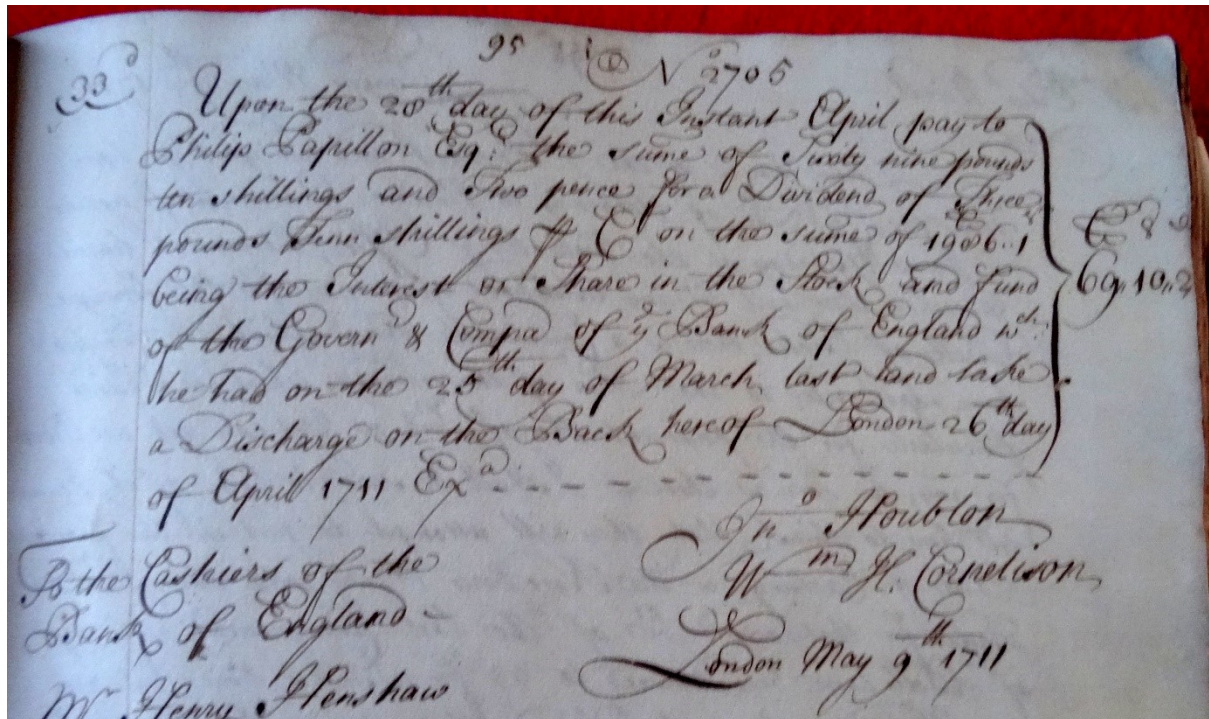 95 No 2705
33d
Upon the 28th day of this Instant April pay to
Philip Papillon Esqr: the sume of Sixty nine pounds
ten shillings and Two pence for a Dividend of Three
pounds Tenn shillings P Ct on the sume of 1986..1
being the Interest or Share in the Stock and fund
of the Governr & Compa of ye Bank of England wch:
he had on the 25th day of March last and take
a Discharge on the Back hereof London 26th day
of April 1711 Exd:
£ s d
69,,10,,2
Jno Houblon
Wm H. Cornelison
To the Cashiers of the
Bank of England
London May 9th 1711
Mr Henry Henshaw